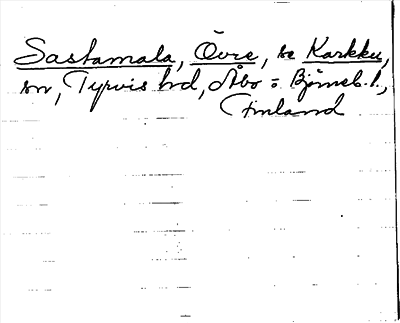 Sastamala, Övre, se Karkku,
sn, Tyrvis hd, Åbo = Björneb. l.,
Finland